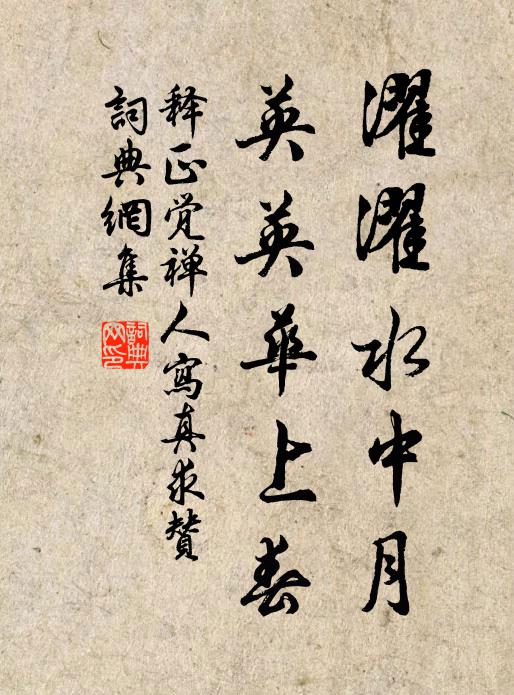 濯濯水中月
英英華上春
释正觉禅人寫真求贊
詞典網集
詞典網印